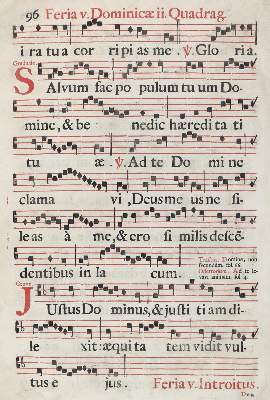 96 Feria v. Dominicæ ii. Quadrag.
i ra tu a cor ri pi as me . ℣. Glo ria.
Graduale.
SAlvum fac po pulum tu um Do-
mine, & be nedic hæredita ti
tu æ. ℣. Ad te Do mi ne
clama vi, Deus me us ne si-
le as à me, & ero si milis descē-
dentibus in la cum.
Tractus. Domine, non
secundum. fol.
Offertorium. Ad te le-
vavi animam. fol. 4.
JUstus Do minus, & justi ti am di-
le xit: æqui ta tem vidit vul-
tus e jus. Feria v. Introitus.